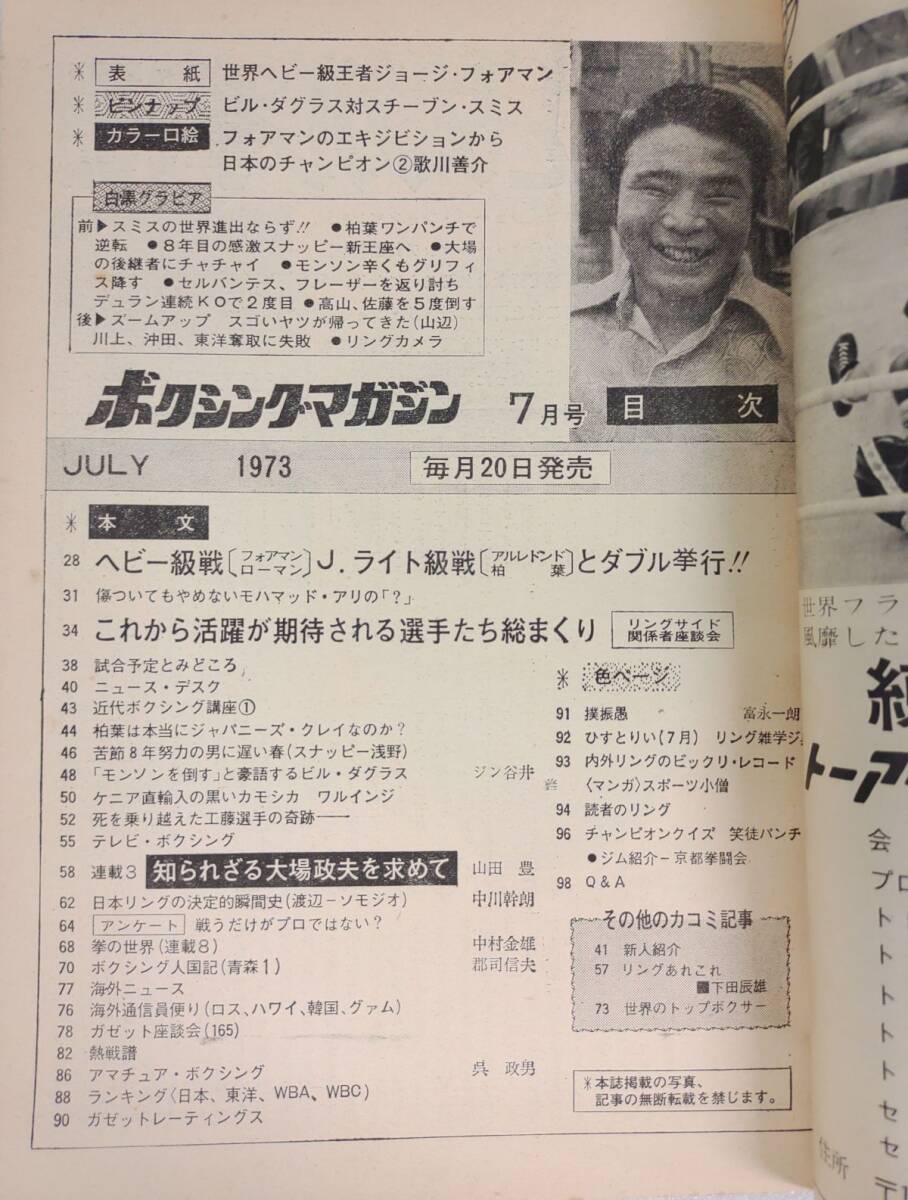 ＊ 表紙 世界ヘビー級王者ジョージ・フォアマン
＊ ピンナップ ビル・ダグラス対スチーブン・スミス
＊ カラー口絵 フォアマンのエキジビションから
日本のチャンピオン②歌川善介
白黒グラビア
前▶スミスの世界進出ならず!! ●柏葉ワンパンチで
逆転 ●8年目の感激スナッピー新王座へ ●大場
の後継者にチャチャイ ●モンソン辛くもグリフィ
ス降す ●セルバンテス、フレーザーを返り討ち
デュラン連続KOで2度目 ●高山、佐藤を5度倒す
後▶ズームアップ スゴいヤツが帰ってきた(山辺)
川上、沖田、東洋奪取に失敗 ●リングカメラ
ボクシングマガジン 7月号 目次
JULY 1973 毎月20日発売
＊ 本文
28 ヘビー級戦〔フォアマン ローマン〕J.ライト級戦〔アルレドンド 柏葉〕とダブル挙行!!
31 傷ついてもやめないモハマッド・アリの「？」
34 これから活躍が期待される選手たち総まくり リングサイド関係者座談会
38 試合予定とみどころ
40 ニュース・デスク
43 近代ボクシング講座①
44 柏葉は本当にジャパニーズ・クレイなのか？
46 苦節8年努力の男に遅い春(スナッピー浅野)
48 「モンソンを倒す」と豪語するビル・ダグラス ジン谷井
50 ケニア直輸入の黒いカモシカ ワルインジ
52 死を乗り越えた工藤選手の奇跡――
55 テレビ・ボクシング
58 連載3 知られざる大場政夫を求めて 山田 豊
62 日本リングの決定的瞬間史(渡辺－ソモジオ) 中川幹朗
64 アンケート 戦うだけがプロではない？
68 拳の世界(連載8) 中村金雄
70 ボクシング人国記(青森1) 郡司信夫
77 海外ニュース
76 海外通信員便り(ロス、ハワイ、韓国、グァム)
78 ガゼット座談会(165)
82 熱戦譜
86 アマチュア・ボクシング 呉 政男
88 ランキング〈日本、東洋、WBA、WBC〉
90 ガゼットレーティングス
＊ 色ページ
91 撲振愚 富永一朗
92 ひすとりい(7月) リング雑学ジ
93 内外リングのビックリ・レコード
〈マンガ〉スポーツ小僧
94 読者のリング
96 チャンピオンクイズ 笑徒パンチ
●ジム紹介－京都拳闘会
98 Q＆A
その他のカコミ記事
41 新人紹介
57 リングあれこれ
■下田辰雄
73 世界のトップボクサー
＊本誌掲載の写真、
記事の無断転載を禁じます。
世界フラ
風靡した
トーア
会
プロ
ト
ト
ト
ト
ト
ト
セ
セ
住所